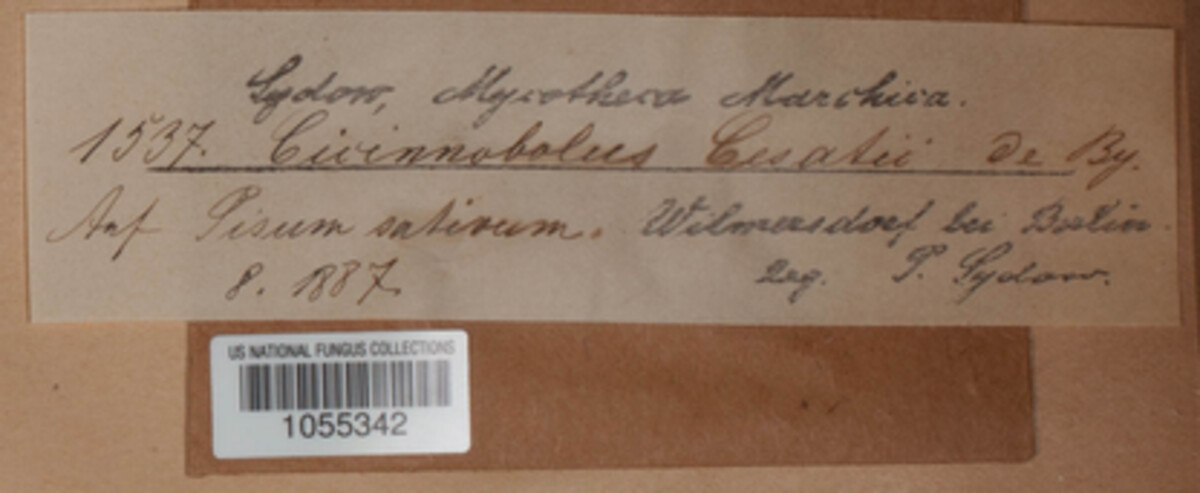 Sydow, Mycotheca Marchica.
1537. Cicinnobolus Cesatii de By.
Auf Pisum sativum. Wilmersdorf bei Berlin.
8. 1887. Leg. P. Sydow.
US NATIONAL FUNGUS COLLECTIONS
1055342